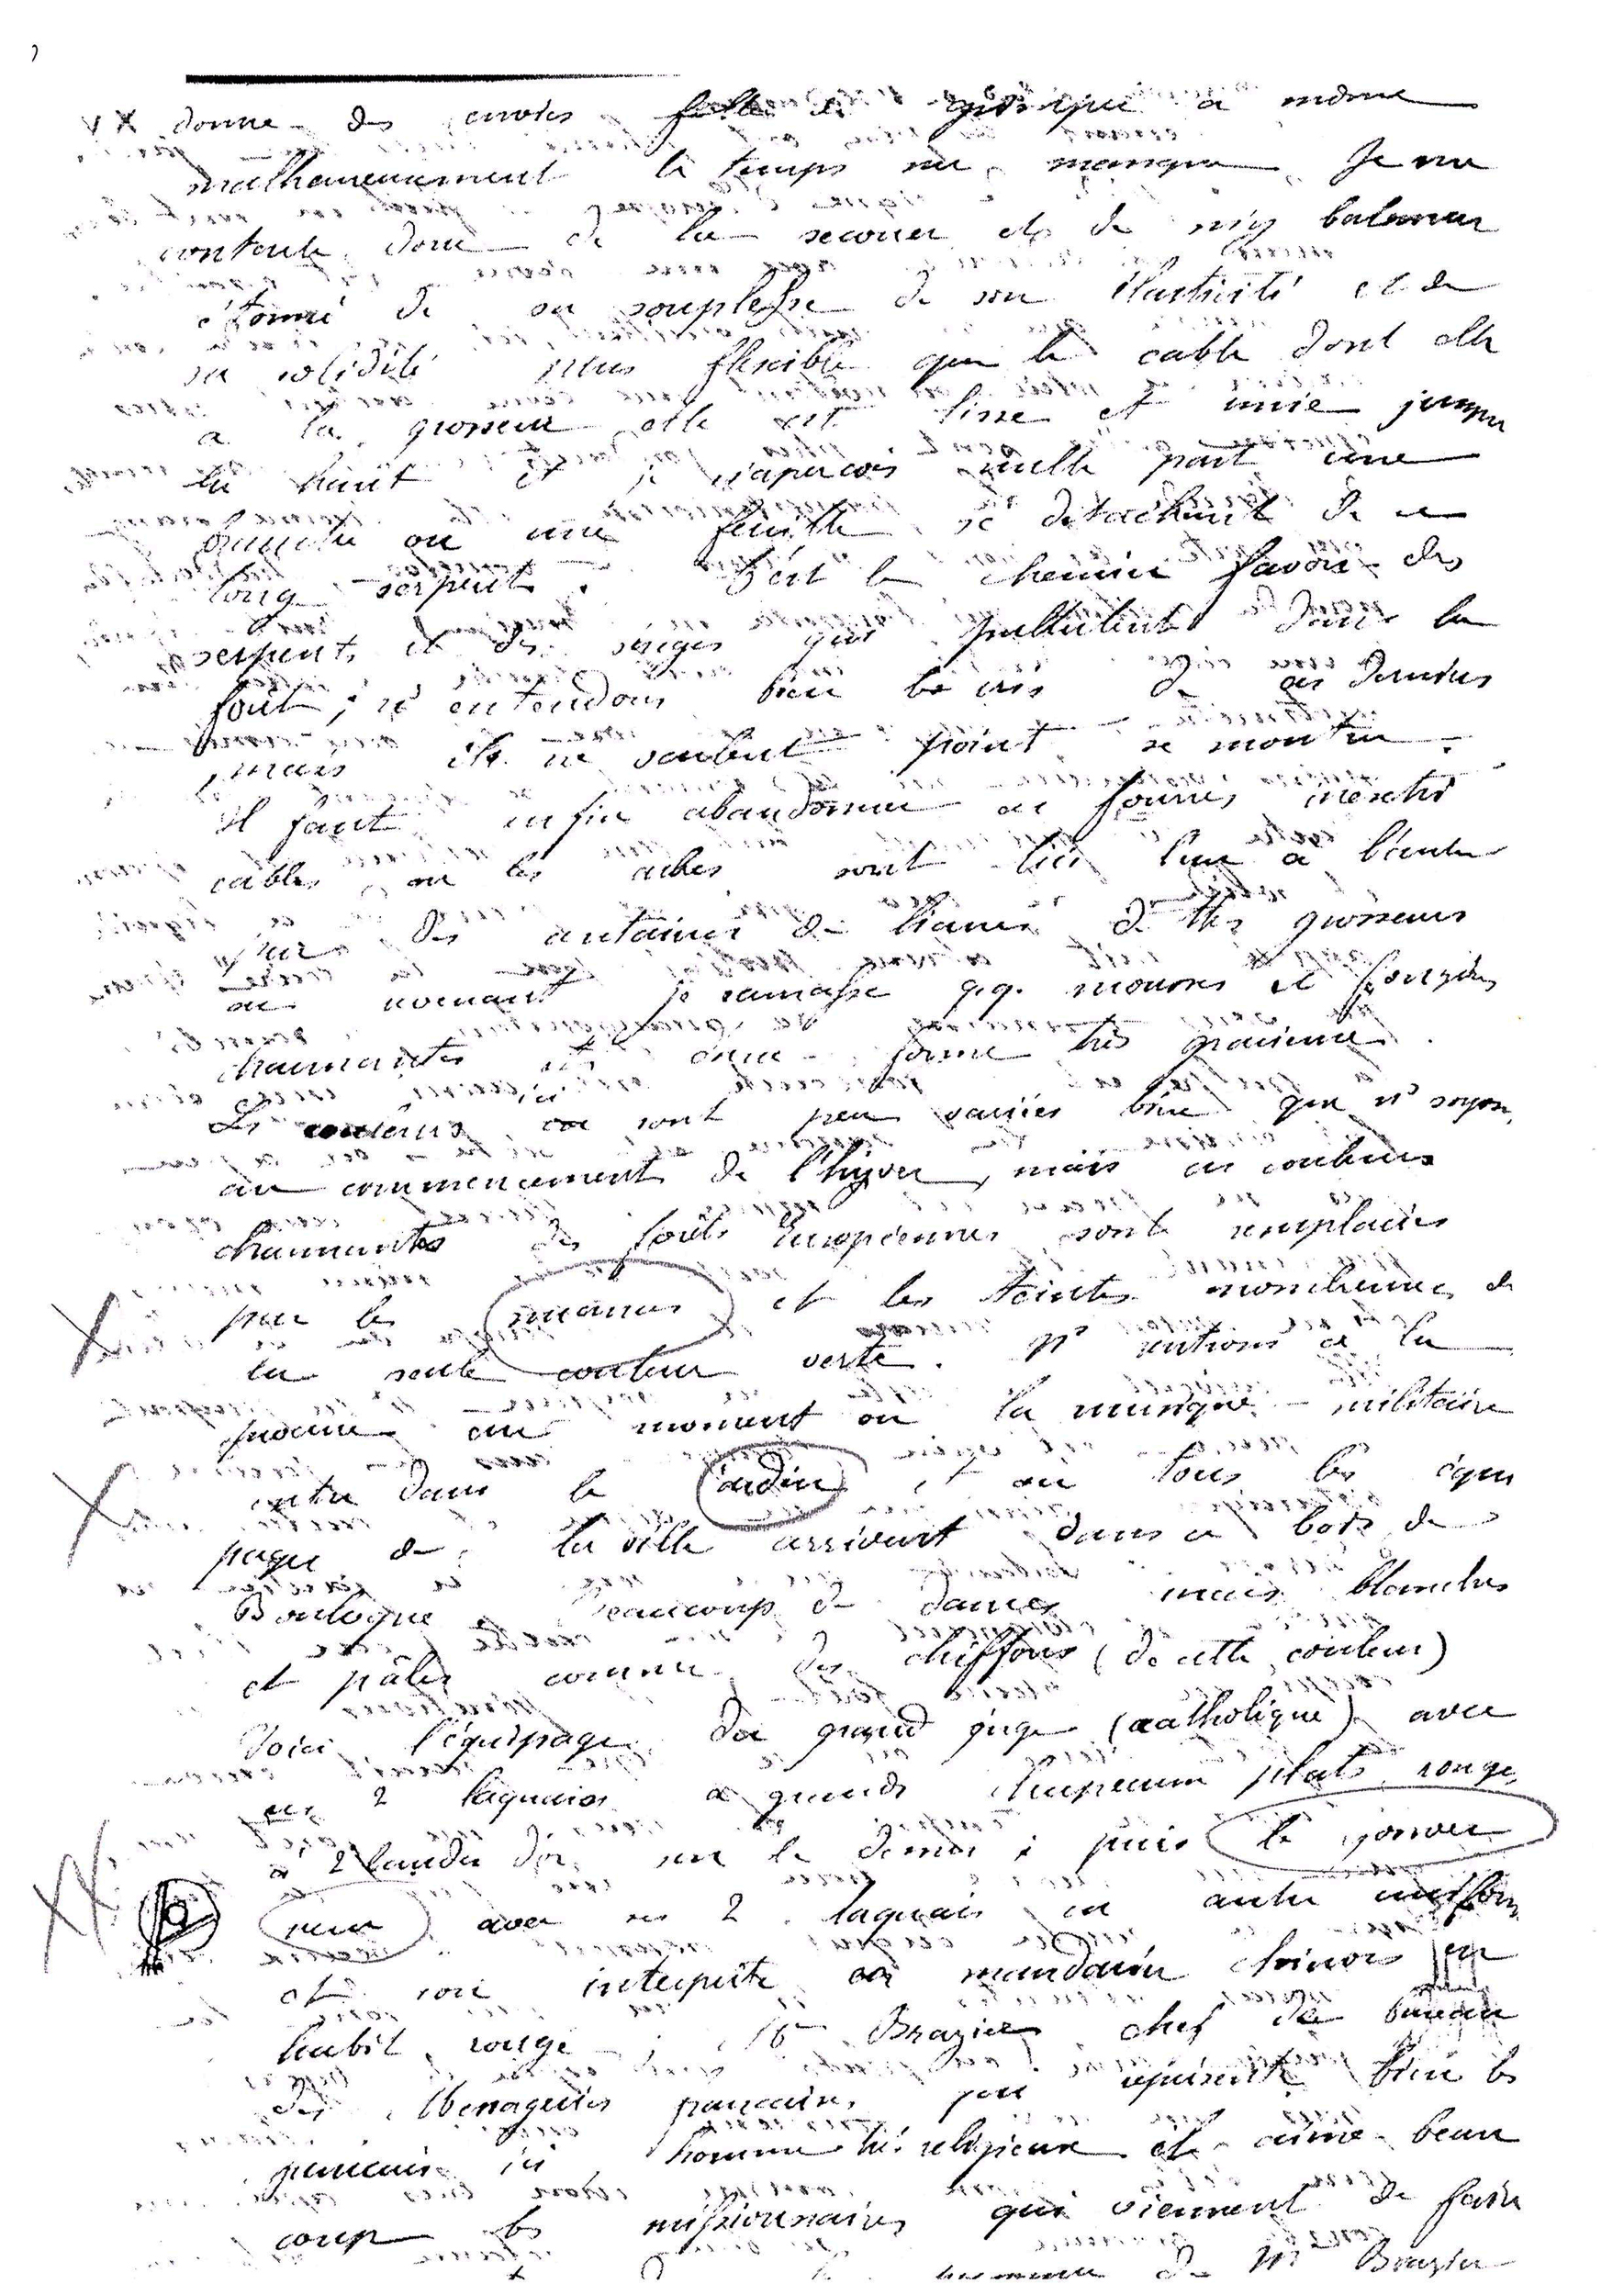 donne des envies folles de grimper à même
malheureusement le temps me manque. Je me
contente donc de la secouer et de m'y balancer
étonné de sa souplesse de son élasticité et de
sa solidité plus flexible que le cable dont elle
a la grosseur elle est lisse et unie jusque
là haut et je n'apercois nulle part une
branche ou une feuille se détachant de ce
long serpent. C'est le chemin favori des
serpents et des singes qui pullulent dans la
forêt ; ns entendons bien les cris de ces derniers
mais ils ne veulent point se montrer.
Il faut enfin abandonner ces fourrés inextri
cables, ou les arbres sont liés l'un à l'autre
par des centaines de lianes de ttes grosseurs
en revenant je ramasse qq. mousses et fougères
charmantes et d'une forme très gracieuse.
Les couleurs ici sont peu variées bien que ns soyons
au commencement de l'hiver, mais ces couleurs
charmantes des forêts Européennes sont remplacées
par les nuances et les teintes moncheuses de
la seule couleur verte. Ns rentrons à la
procure au moment ou la musique militaire
entre dans le jardin et ou tous les équi
pages de la ville arrivent dans ce bois de
Boulogne Beaucoup de dames mais blanches
et pâles comme des chiffons (de cette couleur)
Voici l'équipage du grand juge (catholique) avec
ses 2 laquais à grands chapeaux plats rouges
à 2 bandes d'or sur le dernier ; puis le gouver
neur avec ses 2 laquais en autre uniforme
et son interprète un mandarin chinois en
habit rouge. Mr Brazier chef de bureau
des Messageries francaises, qui représente bien les
francais ici homme très religieux et aime beau
coup les missionnaires qui viennent de faire
de Mr Brazier